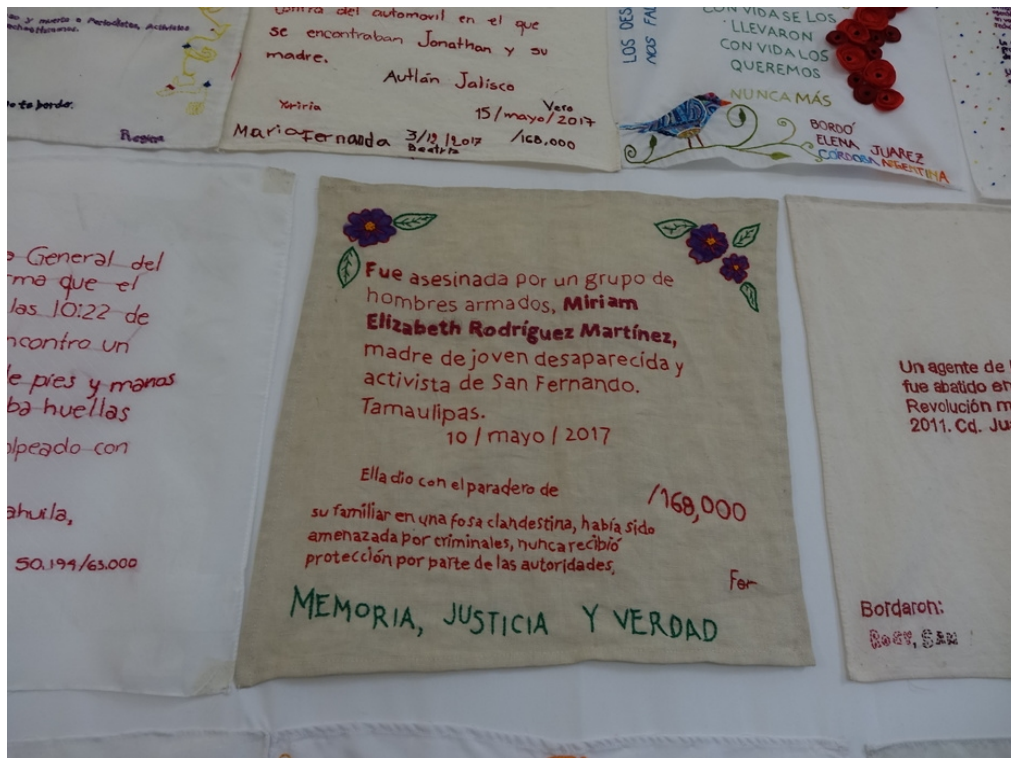 y muerto a Periodistas, Activistas
Region
contra del automovil en el que
se encontraban Jonathan y su
madre.
Autlán Jalisco
Yuriria
Vero
15/mayo/2017
Maria Fernanda
3/12/2017
Beatriz
/168,000
LOS DES
NOS FAL
CON VIDA SE LOS
LLEVARON
CON VIDA LOS
QUEREMOS
NUNCA MÁS
BORDÓ
ELENA JUAREZ
CÓRDOBA ARGENTINA
General del
ma que el
las 10:22 de
ncontro un
de pies y manos
ba huellas
olpeado con
ahuila,
50,194/63.000
Fue asesinada por un grupo de
hombres armados, Miriam
Elizabeth Rodríguez Martínez,
madre de joven desaparecida y
activista de San Fernando.
Tamaulipas.
10 / mayo / 2017
Ella dio con el paradero de
/168,000
su familiar en una fosa clandestina, había sido
amenazada por criminales, nunca recibió
protección por parte de las autoridades.
Fer
MEMORIA, JUSTICIA Y VERDAD
Un agente de
fue abatido en
Revolución m
2011. Cd. Ju
Bordaron: